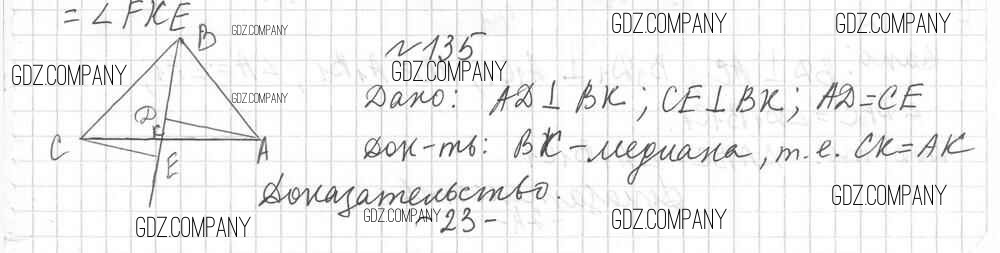 = ∠FKE
B
N135
Дано: AD⊥BK; CE⊥BK; AD=CE
D
C K A
Док-ть: BK-медиана, т.е. CK=AK
E
Доказательство.
-23-
GDZ.COMPANY
GDZ.COMPANY
GDZ.COMPANY
GDZ.COMPANY
GDZ.COMPANY
GDZ.COMPANY
GDZ.COMPANY
GDZ.COMPANY
GDZ.COMPANY
GDZ.COMPANY
GDZ.COMPANY